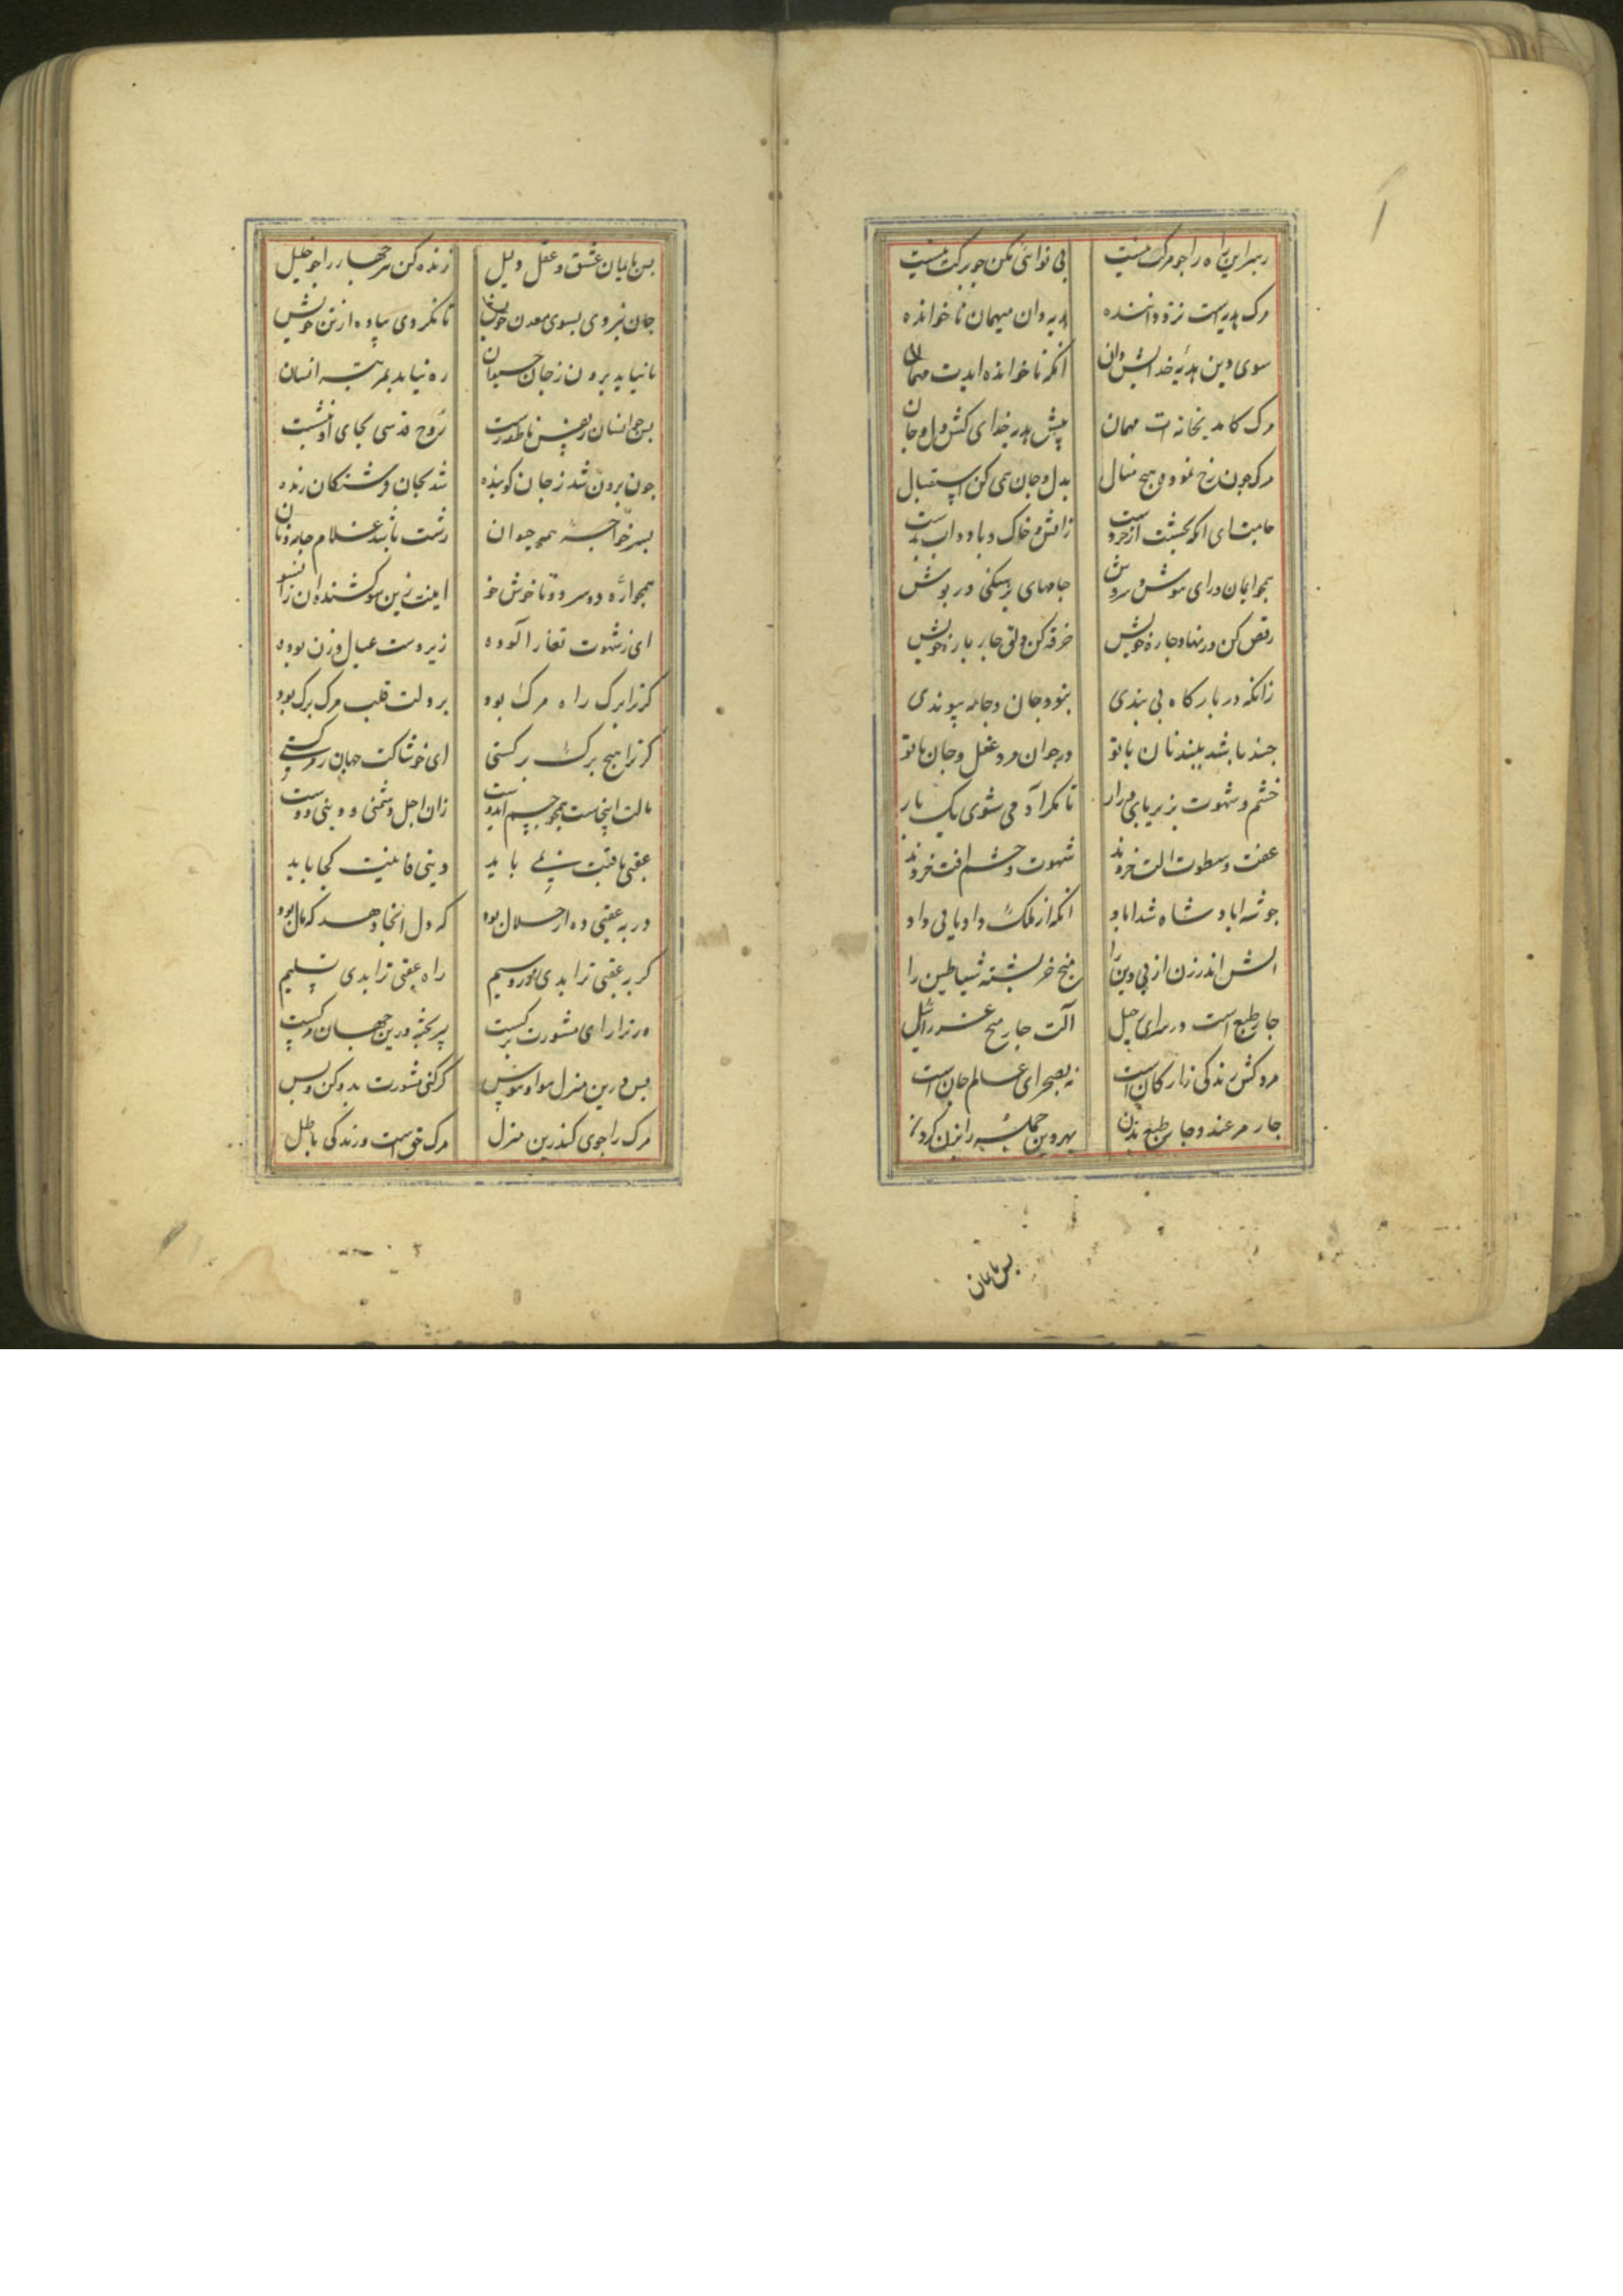 رهبر این راه را جو مرک نیست بی نوائی مکن جو برکت نیست
مرک هدیه است نزد داننده هدیه دان میهمان ناخوانده
سوی دین هدیه خدایش دان انکه ناخوانده ایدت مهمان
مرک کامد بخانه ات مهمان پیش هدیه خدای کش دل و جان
مرک جون رخ نمود هیج منال بدل و جان همی کن استقبال
جامه‌ات ای انکه از خرد زاتش و خاک و باد و اب
همجو ایمان درای موش جامهای برهنکی در بوش
رقص کن در نهاد جاره خویش خرقه کن دلق جار باره خویش
زانکه در بارکاه بی بندی بنود جان و جامه پیوندی
جند باشد ببند نان با تو در جوان مرد عقل و جان با تو
خشم و شهوت بزیر بای در ار تا مکر آدمی شوی یک بار
عفت و سطوت الت خردند شهوت و خشم افت خردند
جو شه اباد شاه شد اباد انکه از ملک داد یابی داد
اتش اندر زن از بی دین را میخ خربشته شیاطین را
جار طبع است در سرای رحیل آلت جار میخ عزرائیل
مرد کش زندکی ز ارکان است نه بصحرای عالم جان است
جار مرغند و جار طبع بدن بهر دین جمله را بزن کردن
بس بایمان
بس بایمان عشق و عقل دلیل زنده کن هر جهار را جو خلیل
جان نبردی بسوی معدن خویش تا نکردی پیاده از تن خویش
تا نیاید برون ز جان حیوان ره نیابد بمرتبه انسان
بس جو انسان ز نفس ناطقه رست روح قدسی بجای او بنشست
جون برون شد ز جان کوینده شد بجان فرشتکان زنده
بسر خواجه همجو حیوان زشت باشد غلام جامه و نان
همجو ارّه دو سر دو تا خوش خو اینت زین سو کشنده ان زانسو
ای ز شهوت تغار آلوده زیر دست عیال و زن بوده
کر ترا برک راه مرک بود بر دلت قلب مرک برک بود
کر ترا هیج برک برکستی ای خوشا کت جهان مرکستی
مالت اینجاست همجو جسم ای دوست زان اجل دشمنی و دینی دوست
عقبی باقیت نمی باید دینی فانیت کجا باید
ور به عقبی ده ارسلان بود که دل انجا دهد که مال بود
کر به عقبی ترا بدی زر و سیم راه عقبی ترا بدی تسلیم
ور ترا رای مشورت بر کیست پیر بخته درین جهان مرکیست
بس درین منزل هوا و هوس کر کنی مشورت بدو کن و بس
مرک را جوی کندرین منزل مرک حق است و زندکی باطل